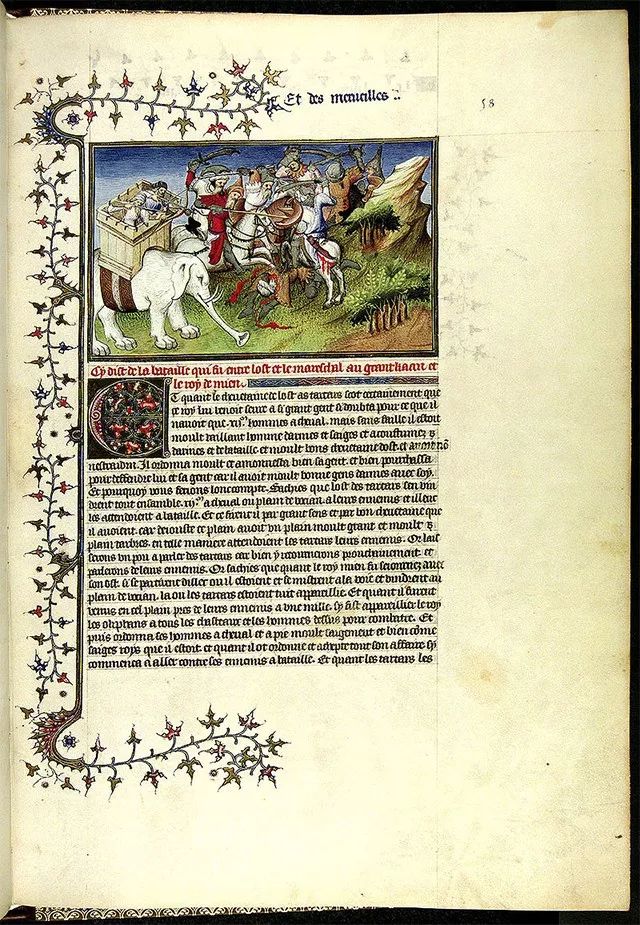 Et des merueilles
58
Cy dist de la bataille qui fu entre lost et le mareschal au grant kaan et
le roy de mien.
Et quant le cheuetaine de lost as tartars scot certainement que
ce roy lui venoit seure a si grant gent si doubta pour ce que il
nauoit que .xij.m hommes a cheual. mais sans faille il estoit
moult vaillant homme darmes et saiges et acoustumez
darmes et de bataille et moult bons cheuetaine dost et
Il ordonna moult et amonnesta bien sa gent. et bien pourchassa
pour deffendre lui et sa gent car il auoit moult bonne gens darmes auec soy.
Et pourquoy vous feroie lonc compte. Sachies que lost des tartars sen vin
drent tout ensemble .xij.m a cheual ou plain de vocian a leurs ennemis et illeuc
les attendoient a bataille. Et ce firent il par grant sens et par bon cheuetaine que
il auoient. car decouste ce plain auoit vn plain moult grant et moult
plain darbres. en telle maniere attendoient les tartars leurs ennemis. Or lais
serons vn pou a parler des tartars car bien y retournerons prouchainement et
parlerons de leurs ennemis. Or sachies que quant le roy mien fu seiournez auec
son ost. si se partirent dillec ou il estoient et se mistrent a la voie et vindrent au
plain de vocian. la ou les tartars estoient tuit appareillie. Et quant il furent
venus en cel plain pres de leurs ennemis a vne mille. sy fist appareillier le roy
les oliphans a tous les chasteaux et les hommes dessus pour combatre. Et
puis ordonna ses hommes a cheual et a pie moult saigement et bien come
saiges roys que il estoit et quant il ot ordonne et tout son affaire sy
commenca a aller contre ses ennemis a bataille. Et quant les tartars les